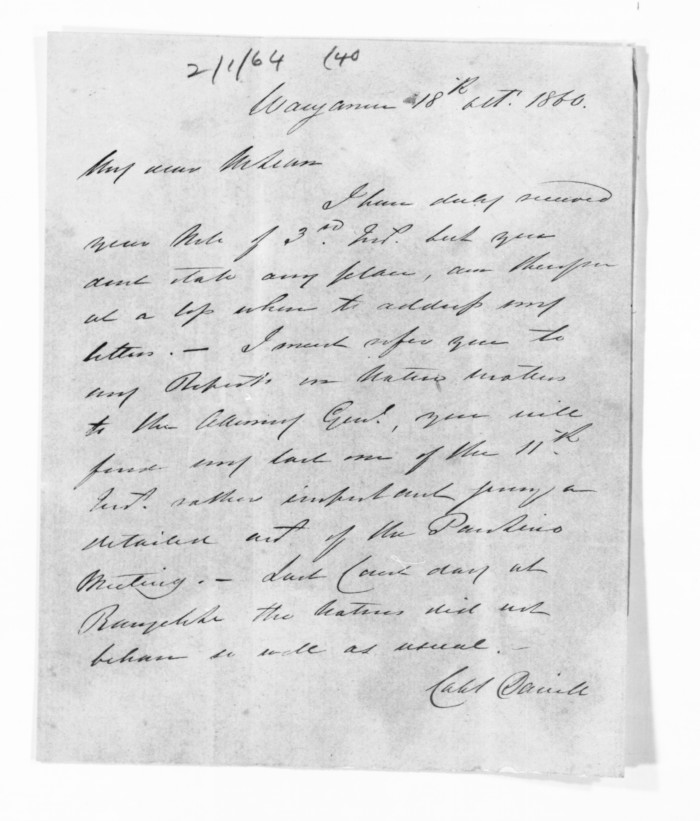 2/1/64 (40
Wanganui 18th Octr. 1860.
My dear McLean
I have duly received
your Note of 3rd. Inst. but you
dont state any place, am therefore
at a loss where to address my
letters. — I must refer you to
my Reports on Native matters
to the Attorney Genl., you will
find my last one of the 11th
Inst. rather important giving a
detailed act. of the
Meeting. — Last Court day at
Rangitikei the Natives did not
behave so well as usual. —
Capt